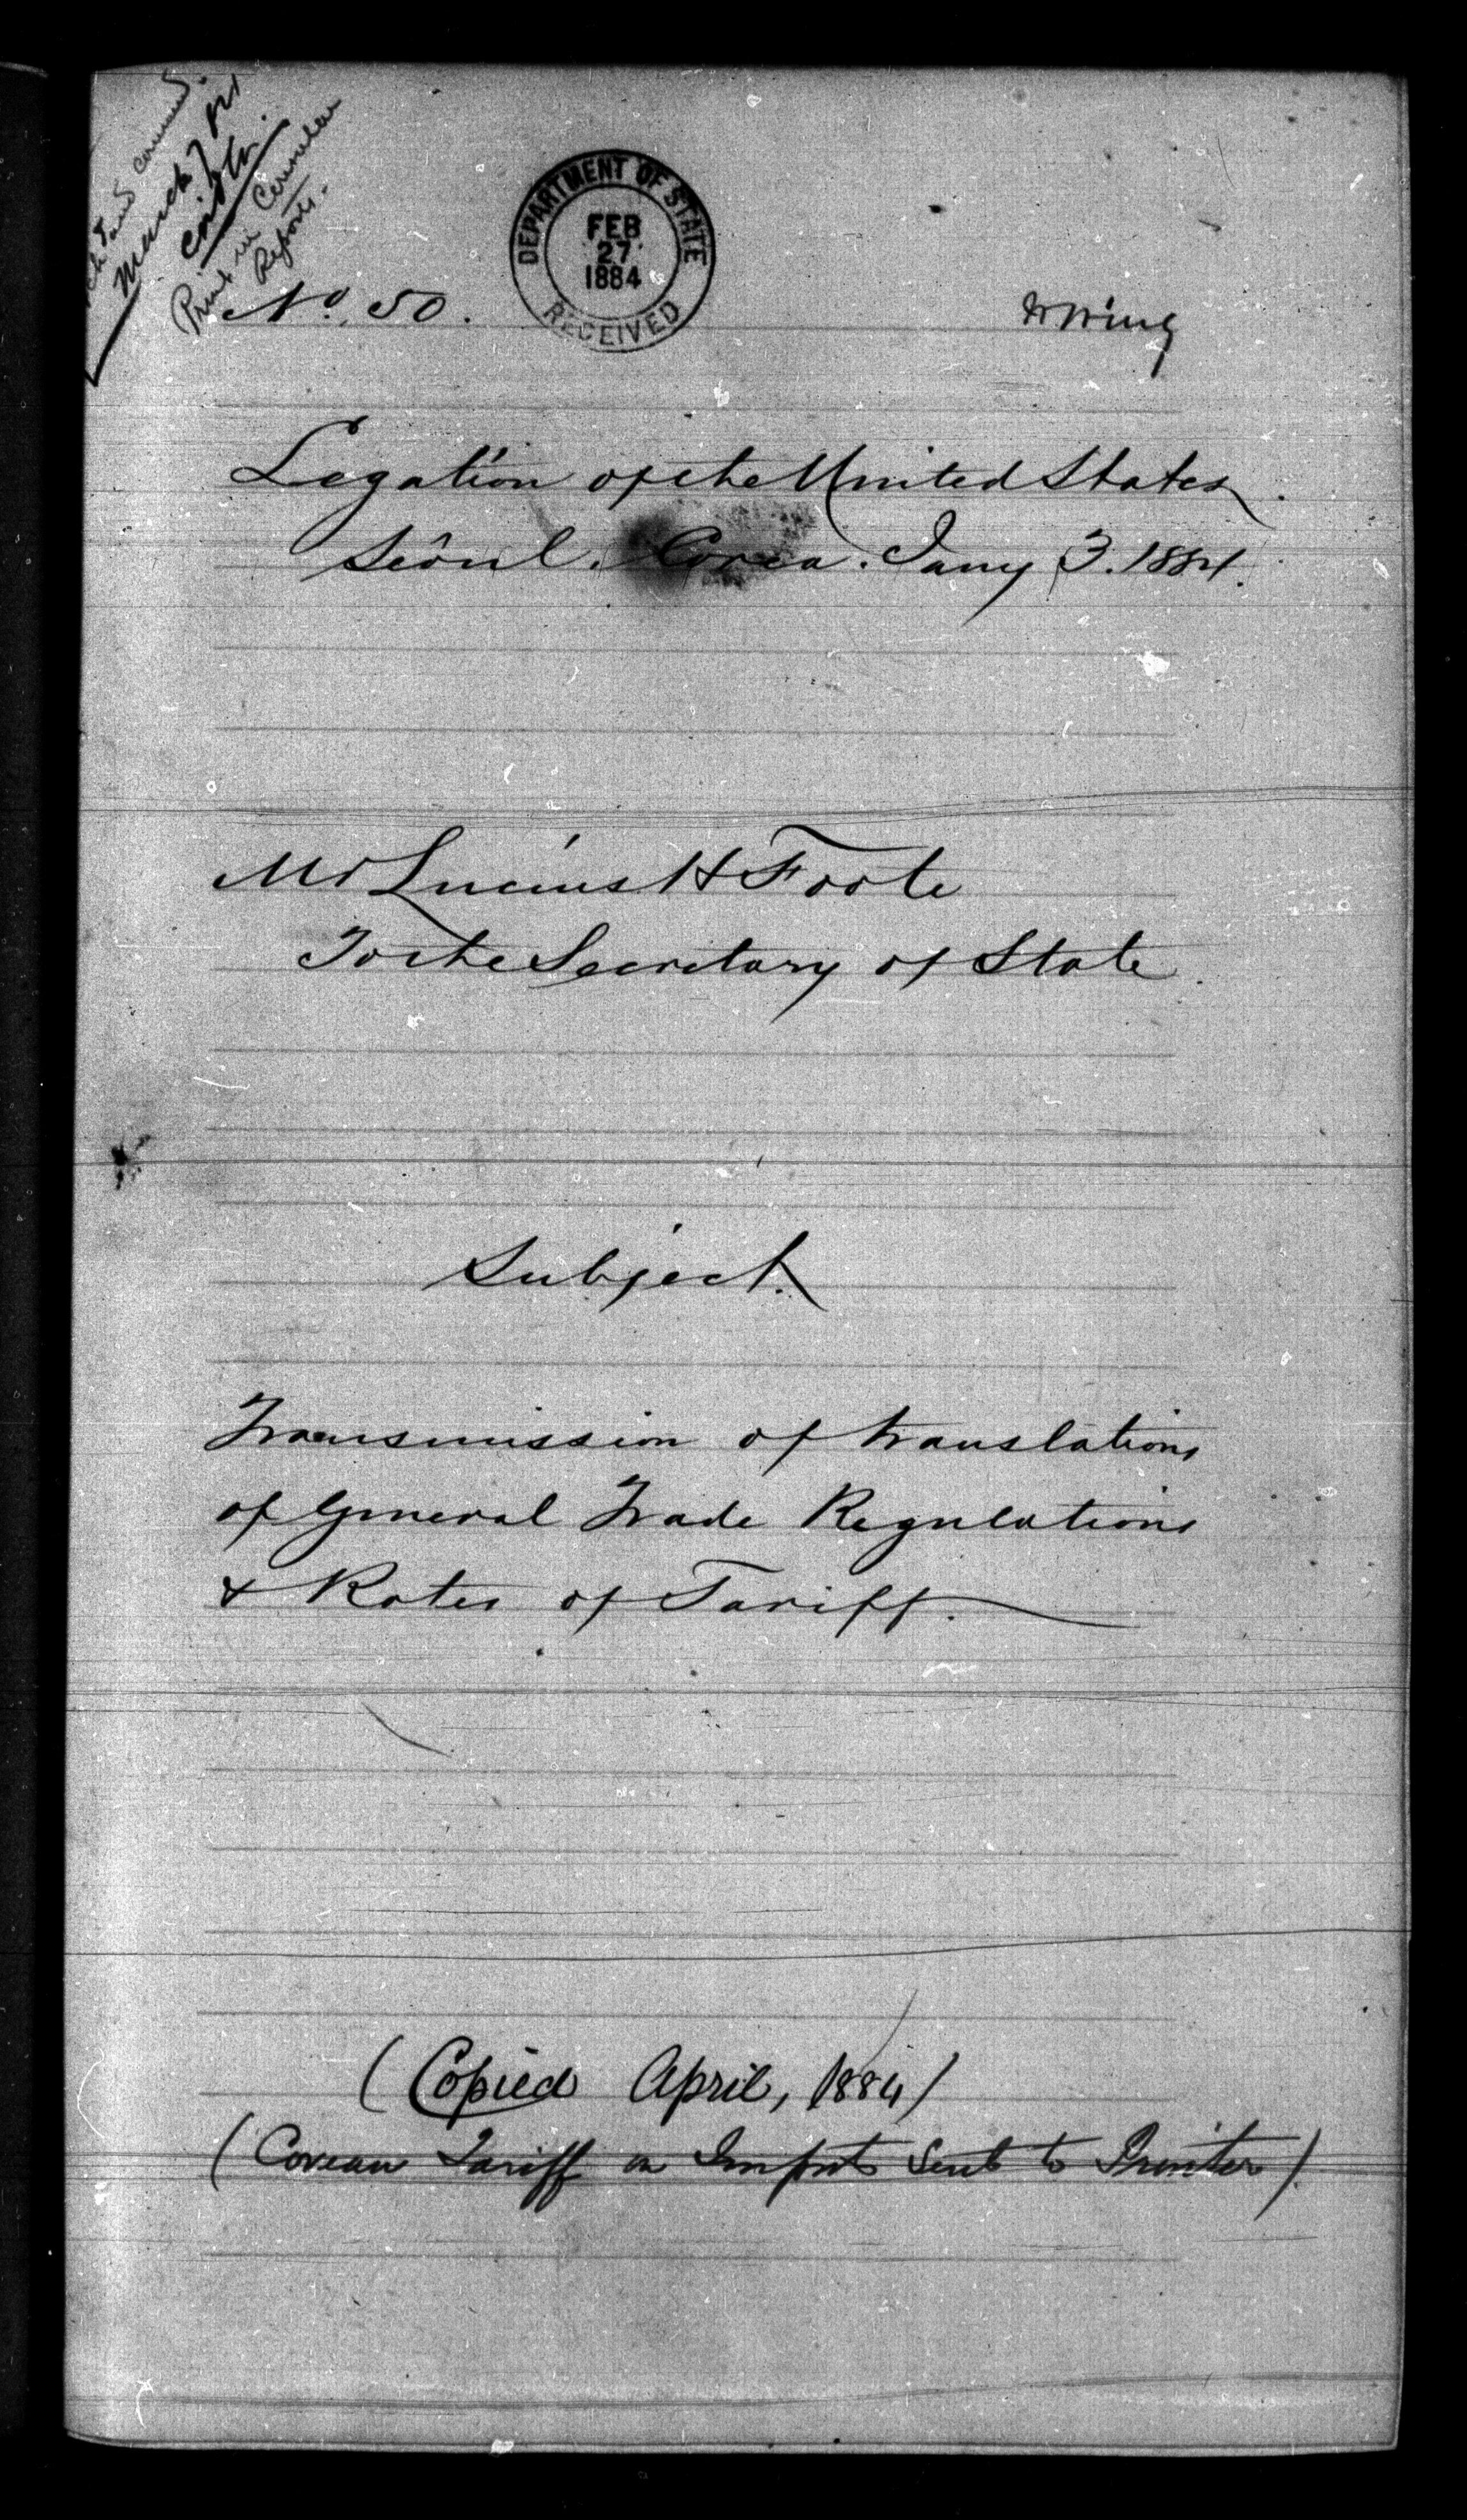 and commend.
March 7 / 84
Print in Consular
Reports.
DEPARTMENT OF STATE
FEB
27
1884
RECEIVED
No. 50.
Legation of the United States.
Seoul. Corea. Jany 3. 1884.
Mr Lucius H Foote
To the Secretary of State.
Subject.
Transmission of translations
of General Trade Regulations
& Rates of Tariff.
(Copied April, 1884)
(Corean Tariff on Imports sent to Printer)